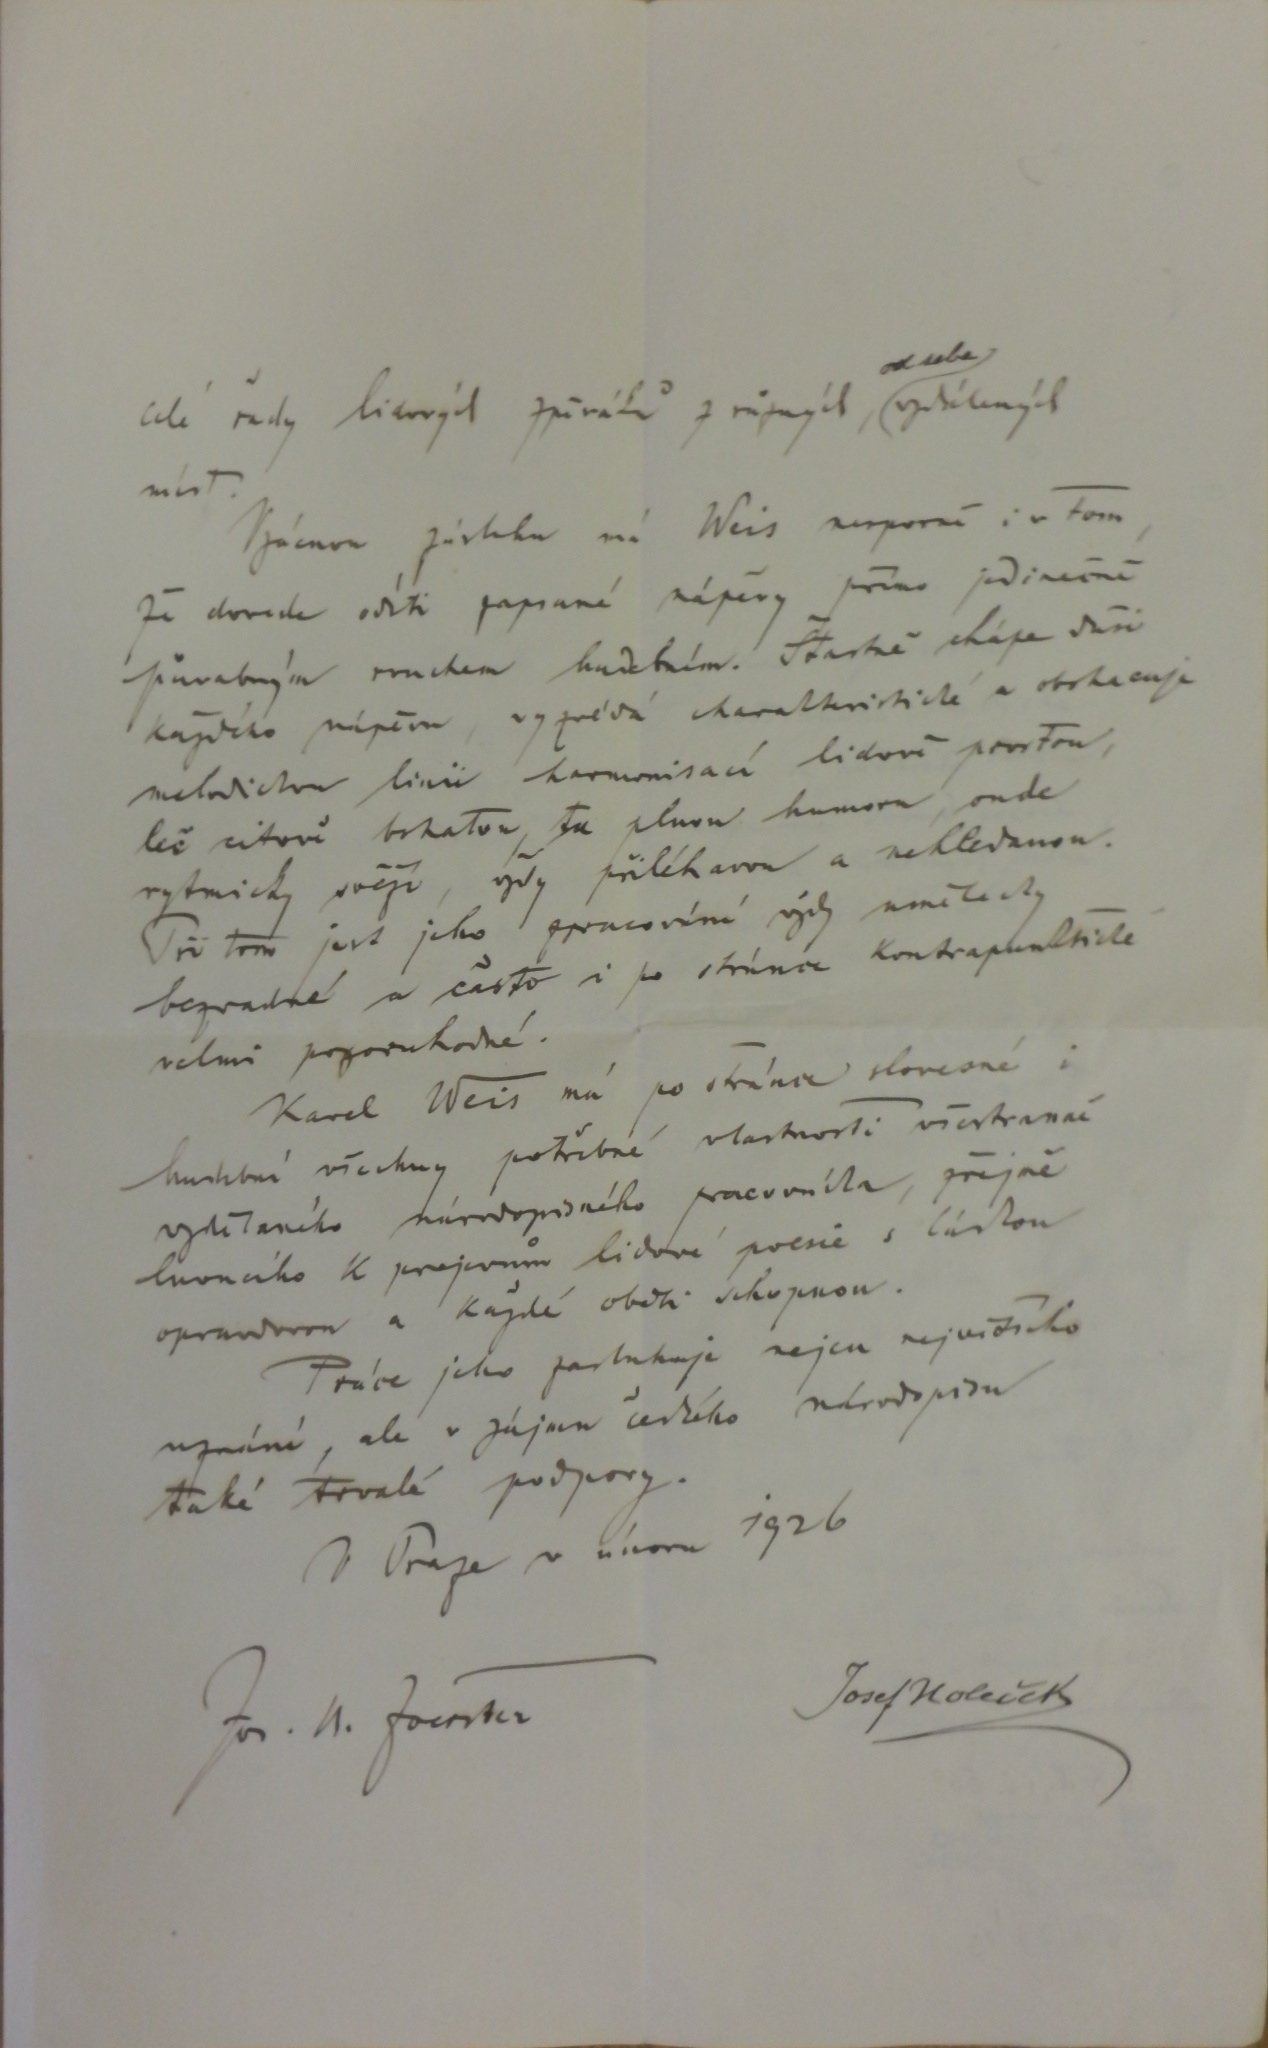 od sebe
celé řady lidových zpěváků z různých, vzdálených
míst.
Vzácnou zásluhu má Weis nesporně i v tom,
že dovede odíti zapsané nápěvy přímo jedinečně
půvabným rouchem hudebním. Šťastně chápe duši
každého nápěvu, vyzvédá charakteristické a obohacuje
melodickou linii harmonisací lidově prostou,
leč citově bohatou, tu plnou humoru, onde
rytmicky svěží, vždy přiléhavou a nehledanou.
Při tom jest jeho zpracování vždy umělecky
bezvadné a často i po stránce kontrapunktické
velmi pozoruhodné.
Karel Weis má po stránce slovesné i
hudební všechny potřebné vlastnosti všestranně
vzdělaného národopisného pracovníka, zřejmě
lnoucího k projevům lidové poesie s láskou
opravdovou a každé oběti schopnou.
Práce jeho zasluhuje nejen největšího
uznání, ale v zájmu českého národopisu
také trvalé podpory.
V Praze v únoru 1926
Jos. B. Foerster
Josef Holeček